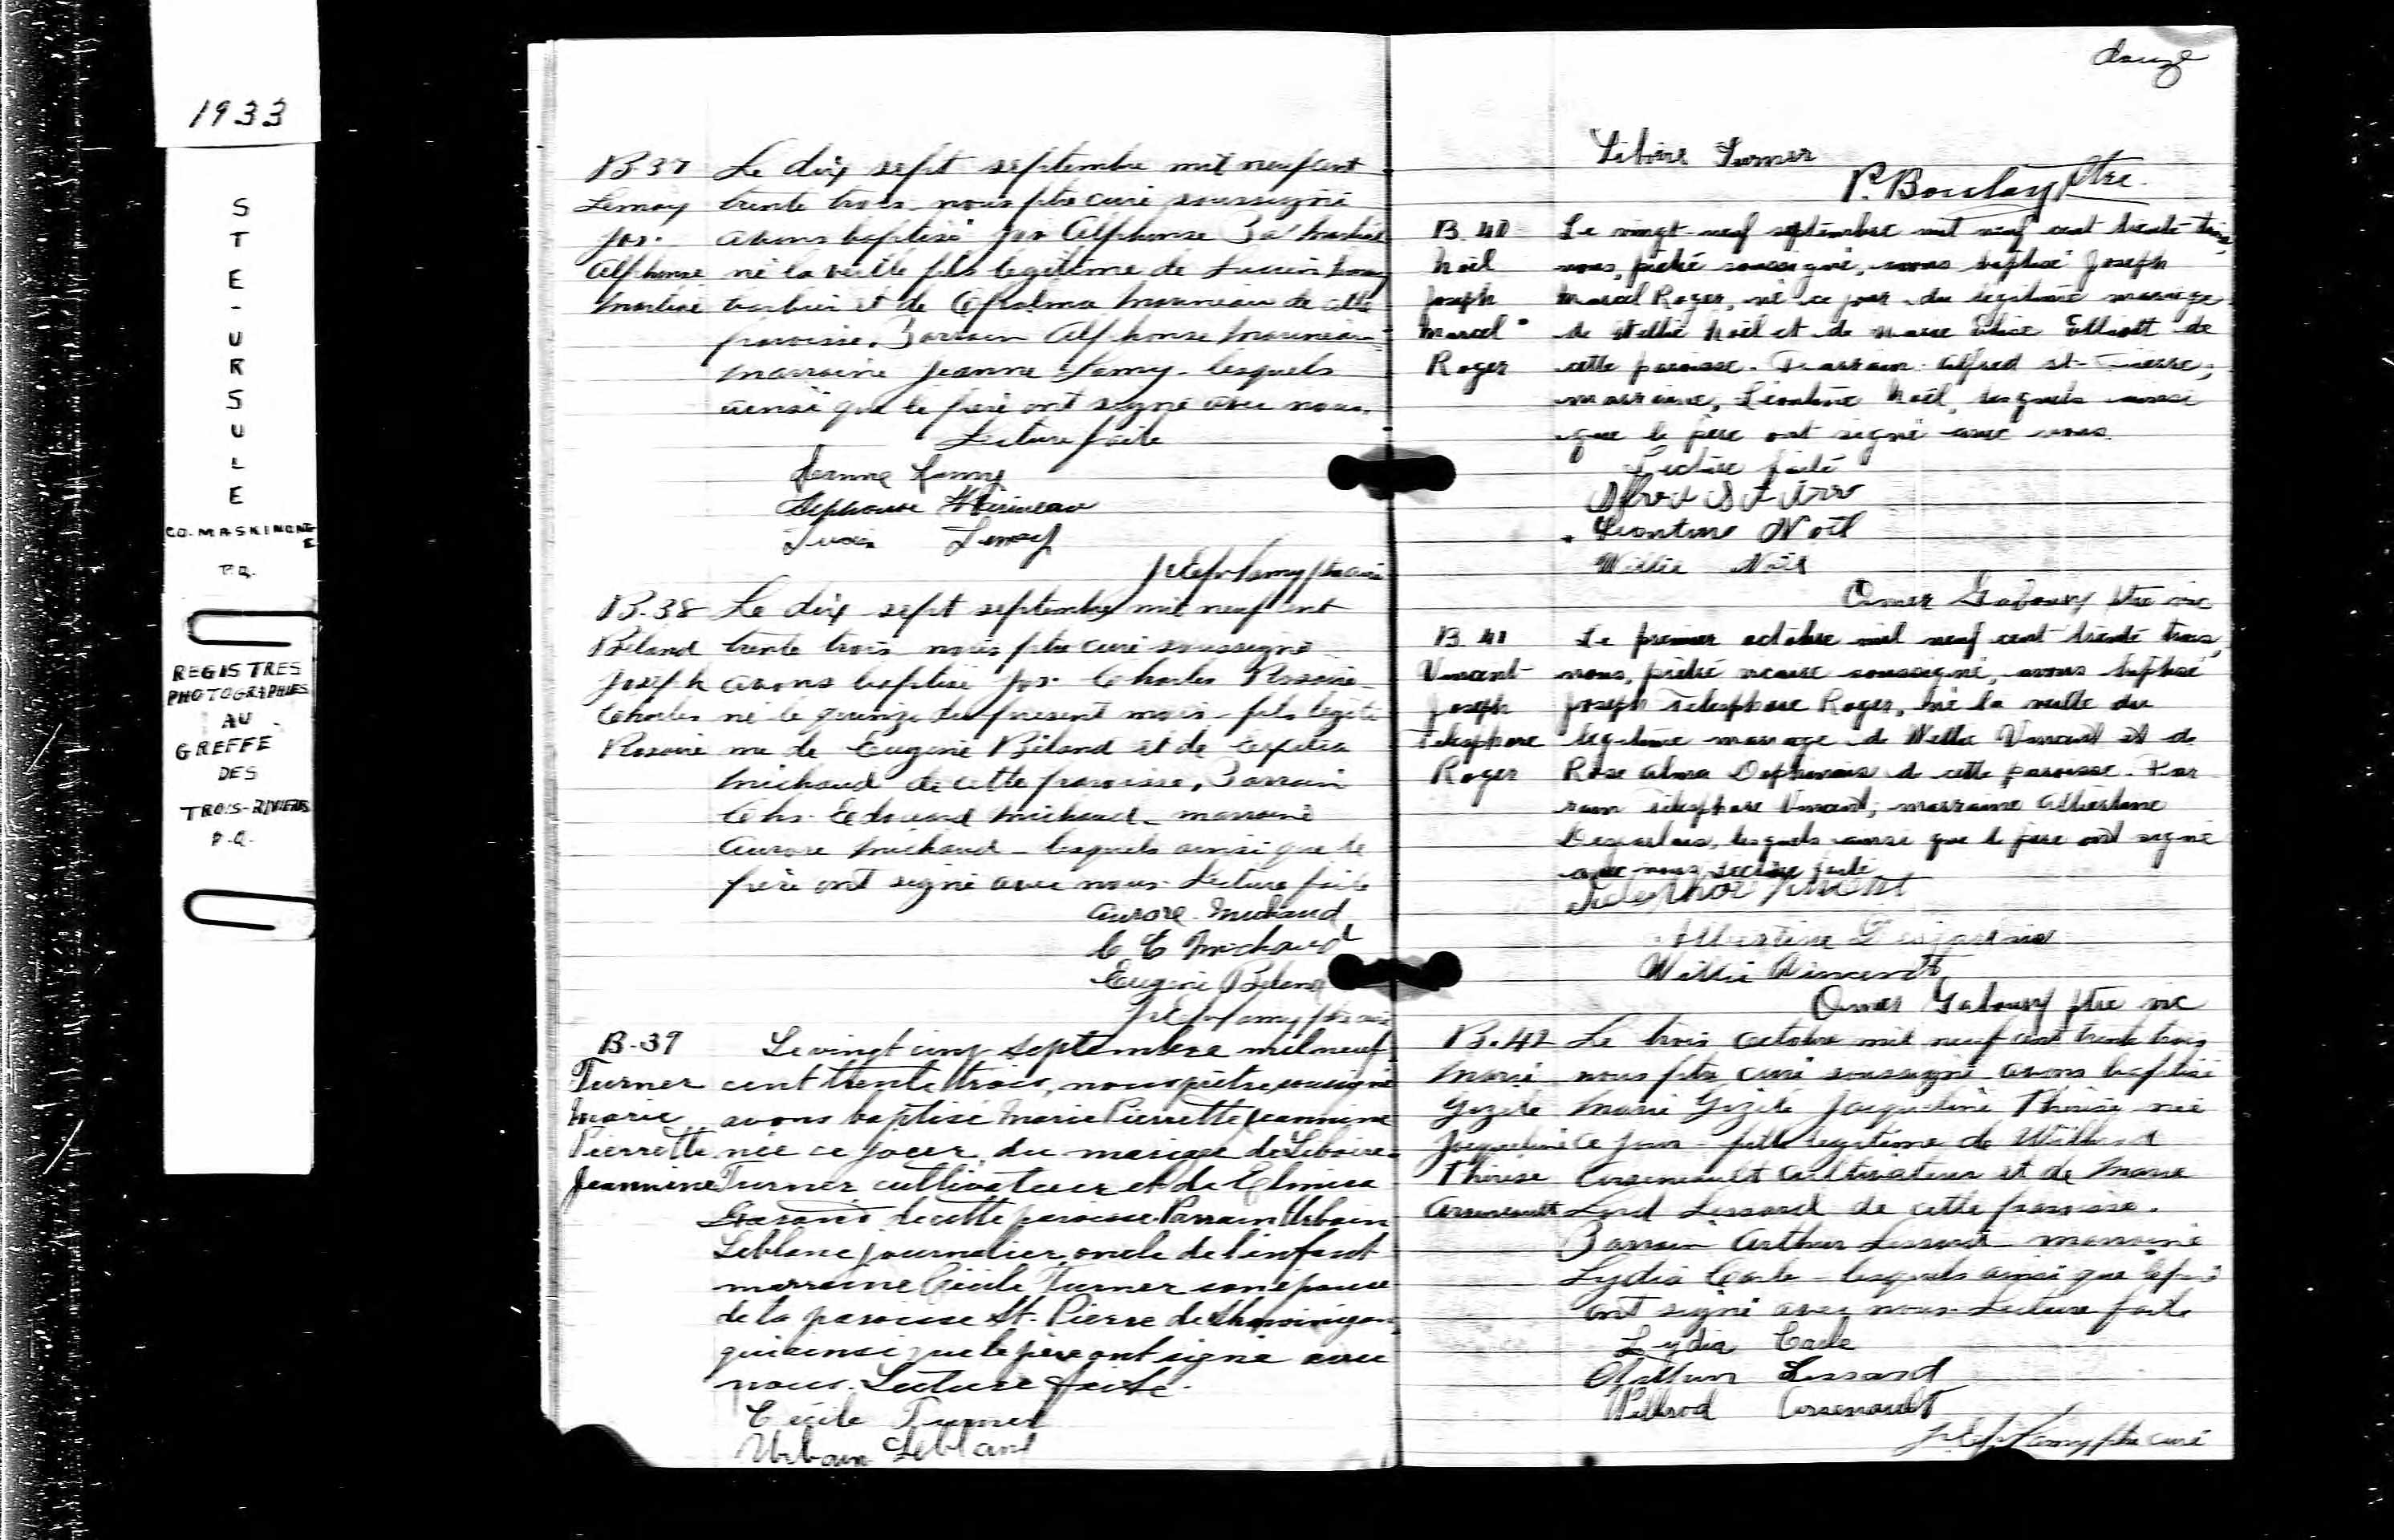 1933
STE-URSULE
CO. MASKINONGE
P.Q.
REGISTRES
PHOTOGRAPHIES
AU
GREFFE
DES
TROIS-RIVIERES
P.Q.
B-37 Le dix sept septembre mil neuf cent
Lemay trente trois nous ptre curé soussigné
Jos. avons baptisé Jos Alphonse
Alphonse né la veille fils légitime de Lucien Lemay
barbier et de de cette
paroisse. Parrain Alphonse
marraine Jeanne Lamy lesquels
ainsi que le père ont signé avec nous.
Lecture faite
Jeanne Lamy
Alphonse
Lucien Lemay
Lamy ptre curé
B.38 Le dix sept septembre mil neuf cent
Béland trente trois nous ptre curé soussigné
Joseph avons baptisé Jos. Charles Rosaire
Charles né le quinze du présent mois fils légiti
Rosaire me de Eugène Béland et de
Michaud de cette paroisse. Parrain
Chs. Edouard Michaud marraine
Aurore Michaud lesquels ainsi que le
père ont signé avec nous. Lecture faite
Aurore Michaud
C E Michaud
Eugène Béland
Lamy ptre curé
B-39 Le vingt cinq septembre mil neuf
Turner cent trente trois, nous prêtre soussigné
Marie avons baptisé Marie Pierrette Jeannine
Pierrette née ce jour, du mariage de Liboire
Jeannine Turner cultivateur et de
de cette paroisse. Parrain Urbain
Leblanc journalier, oncle de l'enfant
marraine Cécile Turner son épouse
de la paroisse St-Pierre de Shawinigan,
qui ainsi que le père ont signé avec
nous. Lecture faite.
Cécile Turner
Urbain Leblanc
douze
Liboire Turner
P. Boulay ptre.
B.40 Le vingt-neuf septembre mil neuf cent trente trois,
Noël nous, prêtre soussigné, avons baptisé Joseph
Joseph Marcel Roger, né ce jour du légitime mariage
Marcel de Willie Noël et de Marie Elliott de
Roger cette paroisse. Parrain Alfred St-Pierre,
marraine, Léontine Noël, lesquels ainsi
que le père ont signé avec nous.
Lecture faite
Léontine Noël
Willie Noël
Omer Gaboury ptre vic
B.41 Le premier octobre mil neuf cent trente trois,
Vincent nous, prêtre vicaire soussigné, avons baptisé
Joseph Joseph Télesphore Roger, né la veille du
Télesphore légitime mariage de Willie Vincent et de
Roger Rose Alma de cette paroisse. Par
rain Télesphore Vincent, marraine Albertine
Desjarlais, lesquels ainsi que le père ont signé
avec nous, lecture faite
Télesphore Vincent
Albertine Desjarlais
Willie Vincent
Omer Gaboury ptre vic
B.42 Le trois octobre mil neuf cent trente trois
Marie nous ptre curé soussigné avons baptisé
Gizèle Marie Gizèle Jacqueline Thérèse née
Jacqueline ce jour fille légitime de
Thérèse Arseneault cultivateur et de Marie
Arseneault Lessard de cette paroisse.
Parrain Arthur Lessard marraine
Lydia Carle lesquels ainsi que le père
ont signé avec nous. Lecture faite
Lydia Carle
Arthur Lessard
Arsenault
Lamy ptre curé